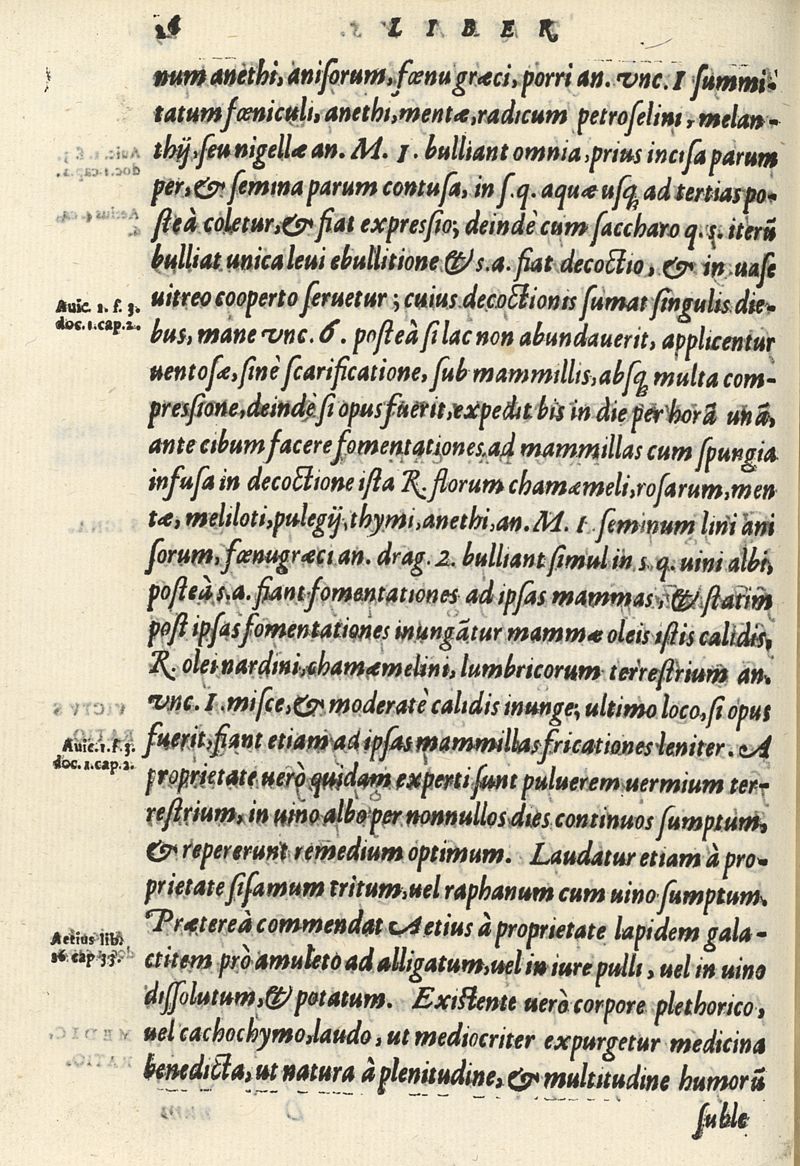 26 LIBER
num anethi, anisorum, fœnugræci, porri an. vnc. 1 summi-
tatum fœniculi, anethi, mentæ, radicum petroselini, melan-
thij, seu nigellæ an. M. 1. bulliant omnia, prius incisa parum
per, & semina parum contusa, in s. q. aquæ usq; ad tertias po-
steà coletur, & fiat expressio; deindè cum saccharo q. s. iterũ
bulliat unica leui ebullitione & s.a. fiat decoctio, & in uase
Auic. 1. f. 3.
doc. 1. cap. 2.
uitreo cooperto seruetur; cuius decoctionis sumat singulis die-
bus, mane vnc. 6. posteà si lac non abundauerit, applicentur
uentosæ, sinè scarificatione, sub mammillis, absq; multa com-
pressione, deindè si opus fuerit, expedit bis in die per horã unã,
ante cibum facere fomentationes ad mammillas cum spungia
infusa in decoctione ista ℞. florum chamæmeli, rosarum, men
tæ, meliloti, pulegij, thymi, anethi, an. M. 1 seminum lini ani
sorum, fœnugræci an. drag. 2. bulliant simul in s. q. uini albi,
posteà s.a. fiant fomentationes ad ipsas mammas, & statim
post ipsas fomentationes inungãtur mammæ oleis istis calidis,
℞. olei nardini, chamæmelini, lumbricorum terrestrium an.
vnc. 1. misce, & moderatè calidis inunge; ultimo loco, si opus
Auic. 1. f. 3.
doc. 1. cap. 2.
fuerit, fiant etiam ad ipsas mammillas fricationes leniter. A
proprietate uerò quidam experti sunt puluerem uermium ter-
restrium, in uino albo per nonnullos dies continuos sumptum,
& repererunt remedium optimum. Laudatur etiam à pro-
prietate sisamum tritum, uel raphanum cum uino sumptum.
Aetius lib.
16. cap. 35.
Prætereà commendat Aetius à proprietate lapidem gala-
ctitem prò amuleto ad alligatum, uel in iure pulli, uel in uino
dissolutum, & potatum. Existente uerò corpore plethorico,
uel cachochymo, laudo, ut mediocriter expurgetur medicina
benedicta, ut natura à plenitudine, & multitudine humorũ
suble